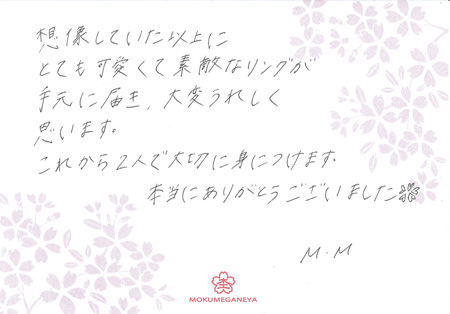 想像していた以上に
とても可愛くて素敵なリングが
手元に届き、大変うれしく
思います。
これから2人で大切に身につけます。
本当にありがとうございました
M.M
MOKUMEGANEYA